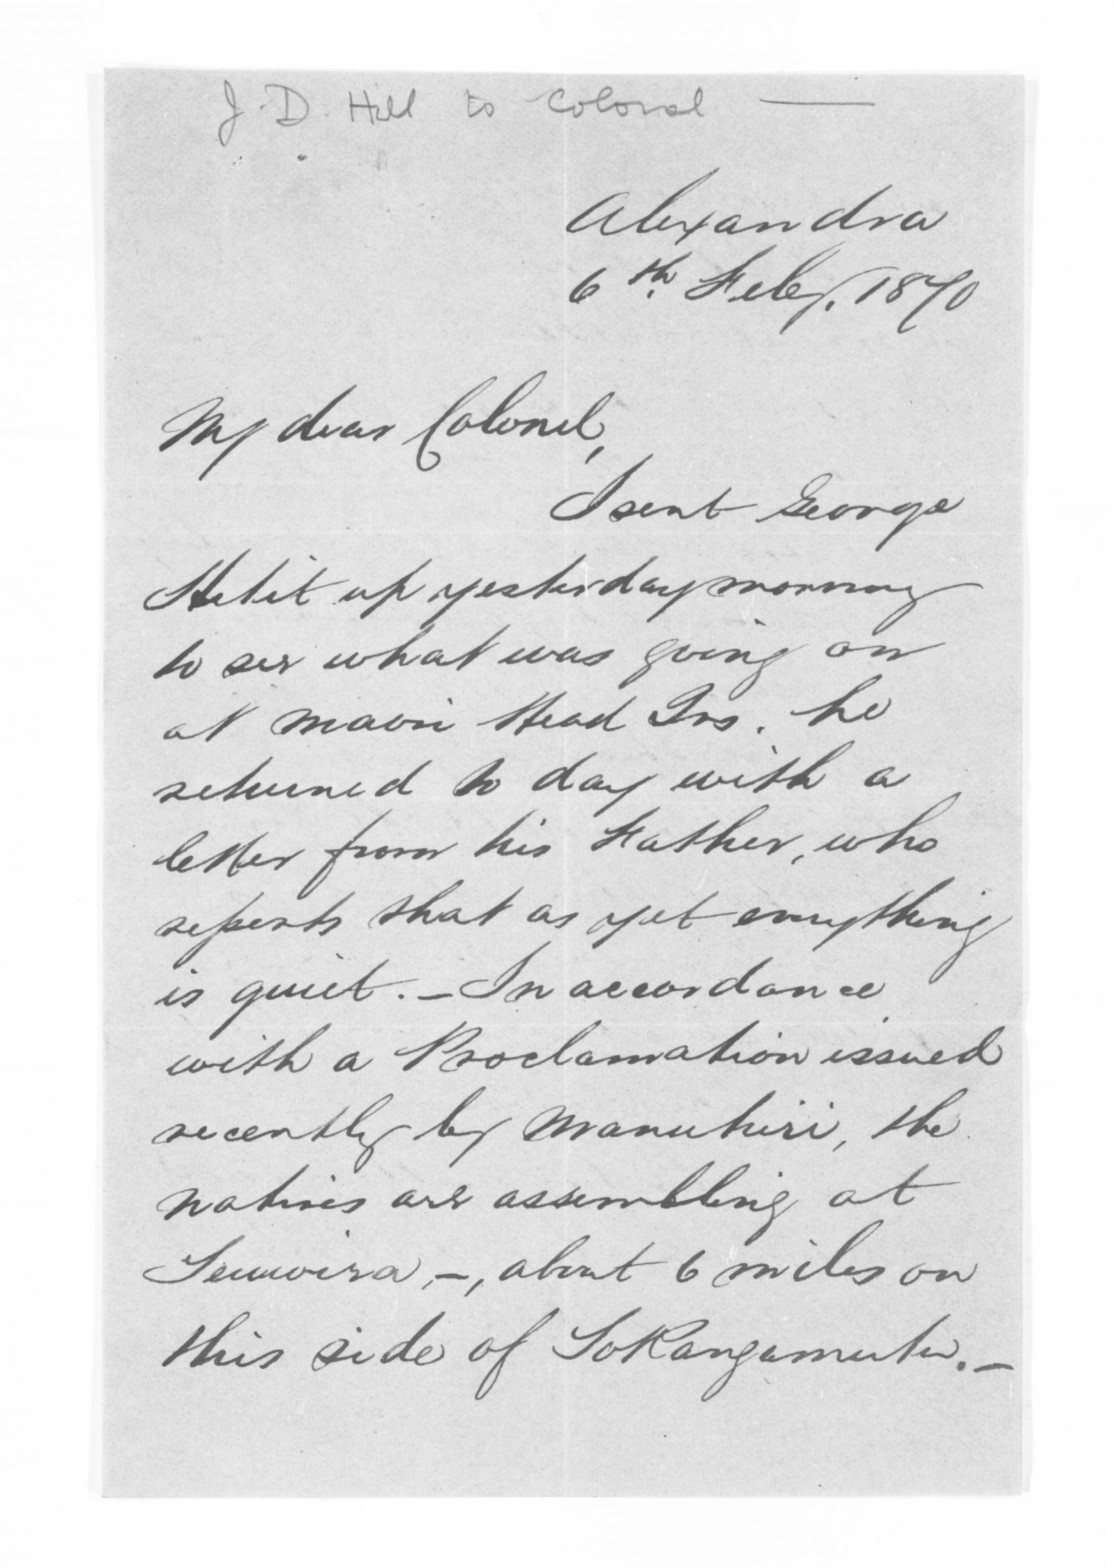 J. D. Hill to Colonel ——
Alexandra
6th. Feby. 1870
My dear Colonel,
I sent George
Hetit up yesterday morning
to see what was going on
at Maori Head Qrs. he
returned to day with a
letter from his Father, who
reports that as yet everything
is quiet. – In accordance
with a Proclamation issued
recently by Manuhiri, the
natives are assembling at
–, about 6 miles on
this side of Tokangamutu. –